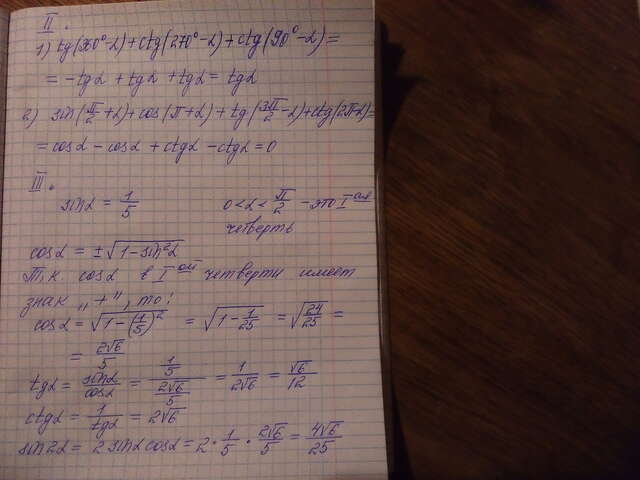 II.
1) tg(360°-α)+ctg(270°-α)+ctg(90°-α)=
= -tgα + tgα + tgα = tgα
2) sin(π/2+α)+cos(π+α)+tg(3π/2-α)+ctg(2π-α)=
= cosα - cosα + ctgα - ctgα = 0
III.
sinα = 1/5 0<α<π/2 - это I ая
четверть
cosα = ±√(1-sin²α)
Т.к. cosα в I ой четверти имеет
знак „+", то:
cosα = √(1-(1/5)²) = √(1-1/25) = √(24/25) =
= 2√6/5
tgα = sinα/cosα = (1/5)/(2√6/5) = 1/(2√6) = √6/12
ctgα = 1/tgα = 2√6
sin2α = 2sinαcosα = 2·1/5·2√6/5 = 4√6/25